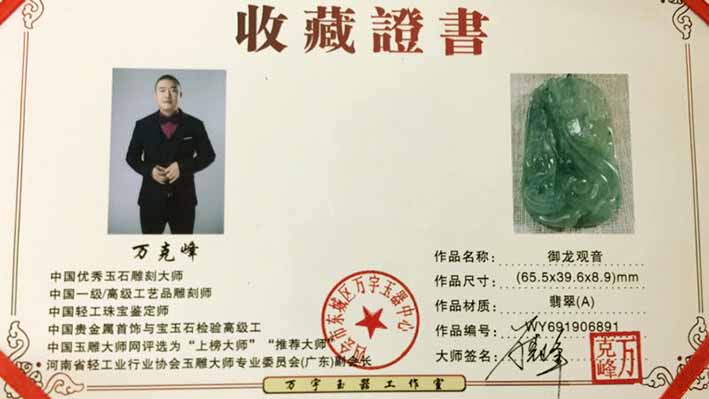 收藏證書
万克峰
中国优秀玉石雕刻大师
中国一级/高级工艺品雕刻师
中国轻工珠宝鉴定师
中国贵金属首饰与宝玉石检验高级工
中国玉雕大师网评选为“上榜大师”“推荐大师”
河南省轻工业行业协会玉雕大师专业委员会(广东)副会长
作品名称: 御龙观音
作品尺寸: (65.5x39.6x8.9)mm
作品材质: 翡翠(A)
作品编号: WY691906891
大师签名:
万克峰
市东城区万宇玉器中心
万宇玉器工作室